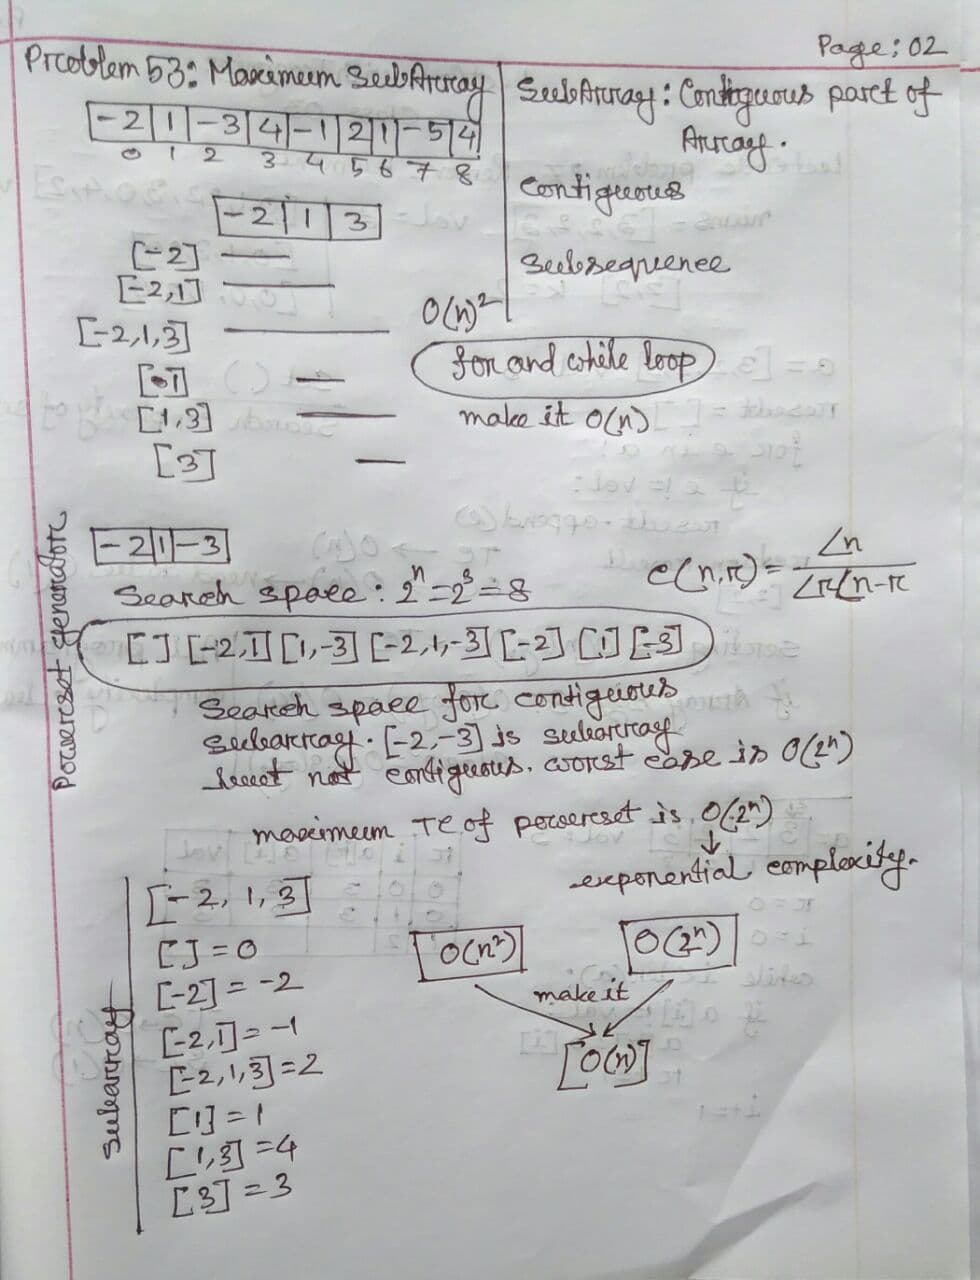 Page: 02
Problem 53: Maximum SubArray
-2 1 -3 4 -1 2 1 -5 4
0 1 2 3 4 5 6 7 8
SubArray: Contiguous part of
Array.
contiguous
subsequence
-2 1 3
[-2]
[-2,1]
[-2,1,3]
[1]
[1,3]
[3]
O(n)²
for and while loop
make it O(n)
Powerset generator
-2 1 -3
Search space: 2ⁿ = 2³ = 8
c(n,r) = ∠n / ∠r∠n-r
[ ] [-2,1] [1,-3] [-2,1,-3] [-2] [1] [-3]
Search space for contiguous
subarray. [-2,-3] is subarray
but not contiguous. worst case is O(2ⁿ)
maximum TC of powerset is O(2ⁿ)
↓
exponential complexity.
subarray
[-2, 1, 3]
[ ] = 0
[-2] = -2
[-2,1] = -1
[-2,1,3] = 2
[1] = 1
[1,3] = 4
[3] = 3
O(n²) O(2ⁿ)
make it
[O(n)]